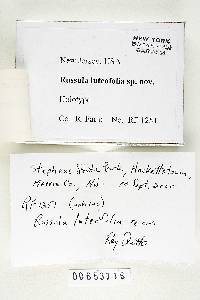 NEW YORK
BOTANICAL
GARDEN
New Jersey, USA
Russula luteofolia sp. nov.
Holotype
Co. R. Fatto No. RF 1251
Stephens State Park, Hackettstown,
Morris Co., NJ Sept.
RF 1251
Russula luteofolia
Ray Fatto